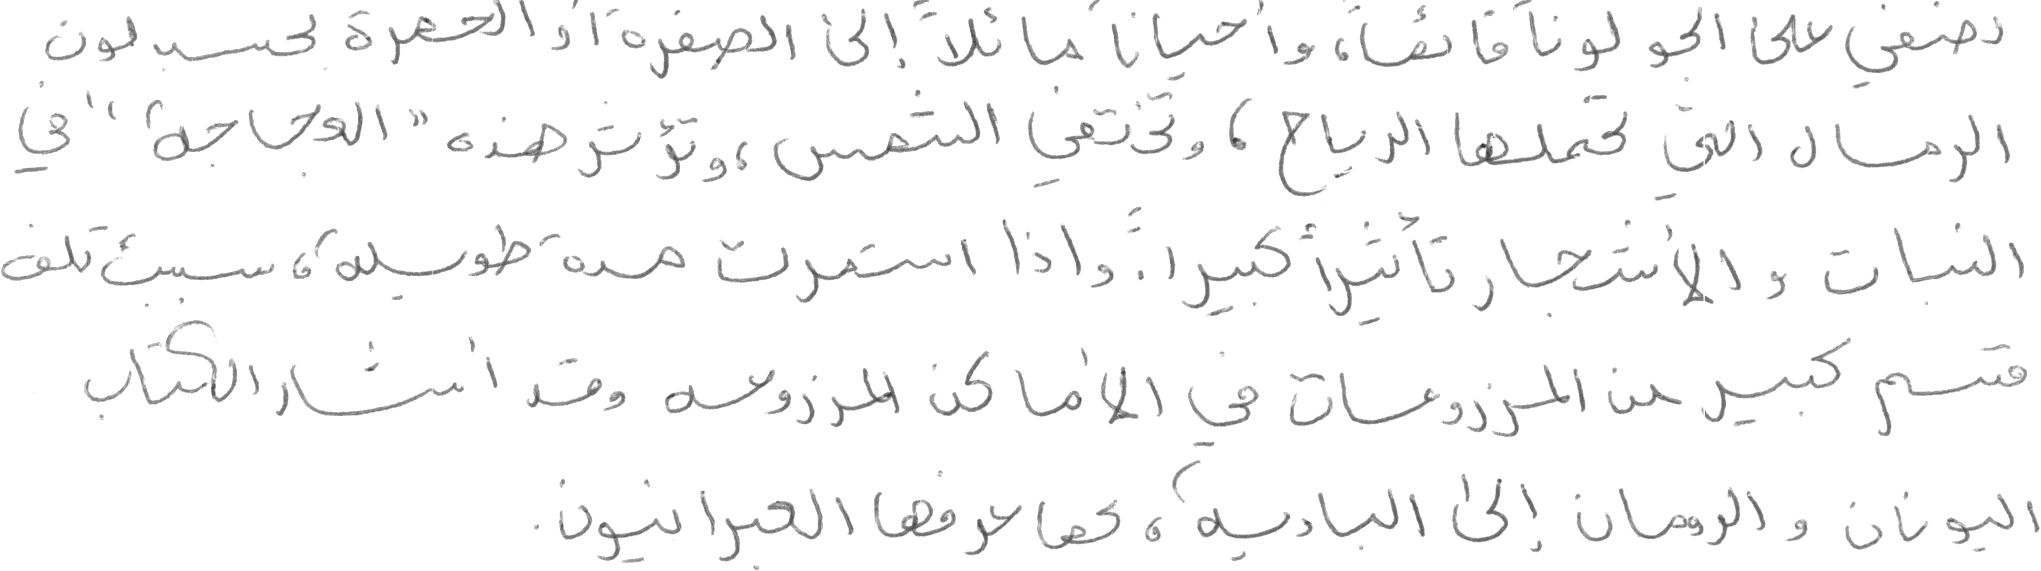 تضفي على الجو لوناً قائماً، وأحياناً مائلاً إلى الصفرة أو الحمرة بحسب لون
الرمال التي تحملها الرياح، وتختفي الشمس، وتؤثر هذه "العجاجة" في
النبات والأشجار تأثيراً كبيراً. وإذا استمرت مدة طويلة، سببت تلف
قسم كبير من المزروعات في الأماكن المزروعة وقد أشار الكتاب
اليونان والرومان إلى البادية، كما عرفها العبرانيون.